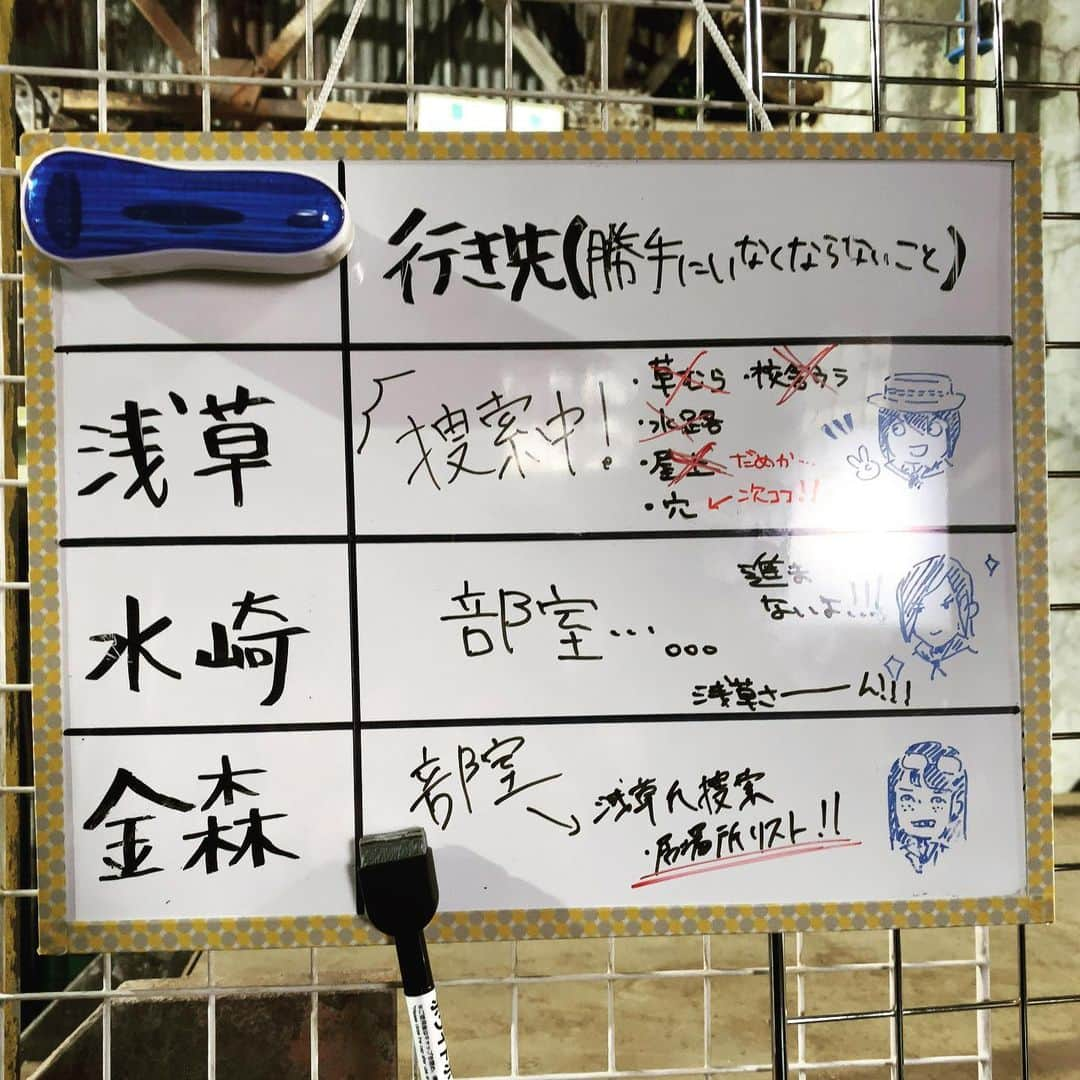 行き先(勝手にいなくならないこと)
浅草
捜索中!
・草むら ・校舎ウラ
・水路
・屋上 だめか…
・穴 ↙次ココ!!
水崎
部室…。。。
進ま
ないよ!!!
浅草さーーん!!!
金森
部室
浅草氏捜索
・居場所リスト!!